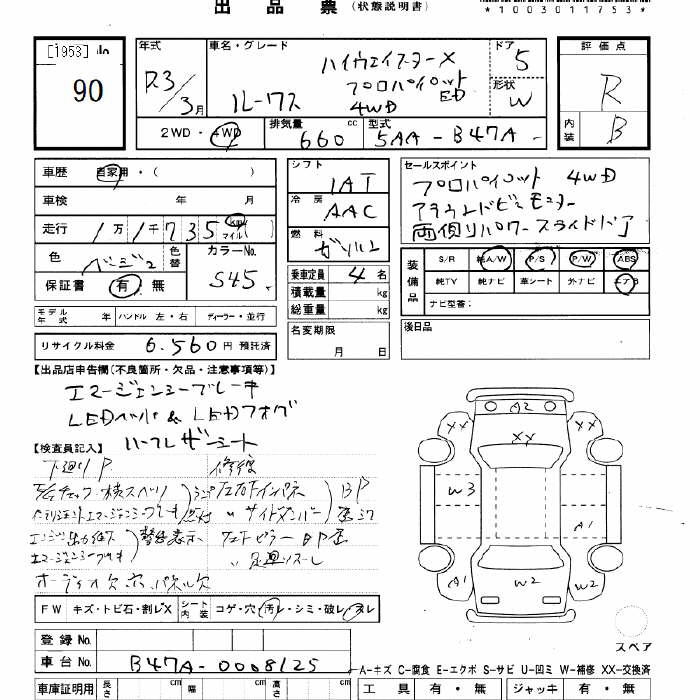 出品票（状態説明書）
*1003011753*
[1953]
90
年式
R3/3月
車名・グレード
ルークス
ハイウェイスターX
プロパイロットED
4WD
ドア
5
形状
W
評価点
R
内装
B
2WD・4WD
排気量 660 cc
型式 5AA-B47A
車歴 自家用・（ ）
車検 年 月
走行 1万1千735 km マイル
色 ベージュ2
色替
カラーNo. S45
保証書 有・無
モデル年式 年 ハンドル 左・右 ディーラー・並行
リサイクル料金 6.560円 預託済
シフト
IAT
冷房
AAC
燃料
ガソリン
乗車定員 4名
積載量 kg
総重量 kg
名変期限
月 日
セールスポイント
プロパイロット 4WD
アラウンドビューモニター
両側リパワースライドドア
装備品
S/R 純A/W P/S P/W ABS
純TV 純ナビ 革シート 外ナビ エアB
ナビ型番:
後日品
【出品店申告欄(不良箇所・欠品・注意事項等)】
エマージェンシーブレーキ
LEDヘッドランプ & LEDフォグ
ハーフレザーシート
【検査員記入】
下廻りP
修復
エマージェンシーブレーキ
警告表示
FW キズ・トビ石・割レX
シート内装 コゲ・穴・汚レ・シミ・破レ・スレ
登録No.
車台No. B47A-0008125
車庫証明用 長さ cm 幅 cm 高さ cm
A2
XX
XX
XX
W3
A1
A1
W2
W2
スペア
A-キズ C-腐食 E-エクボ S-サビ U-凹ミ W-補修 XX-交換済
工具 有・無 ジャッキ 有・無